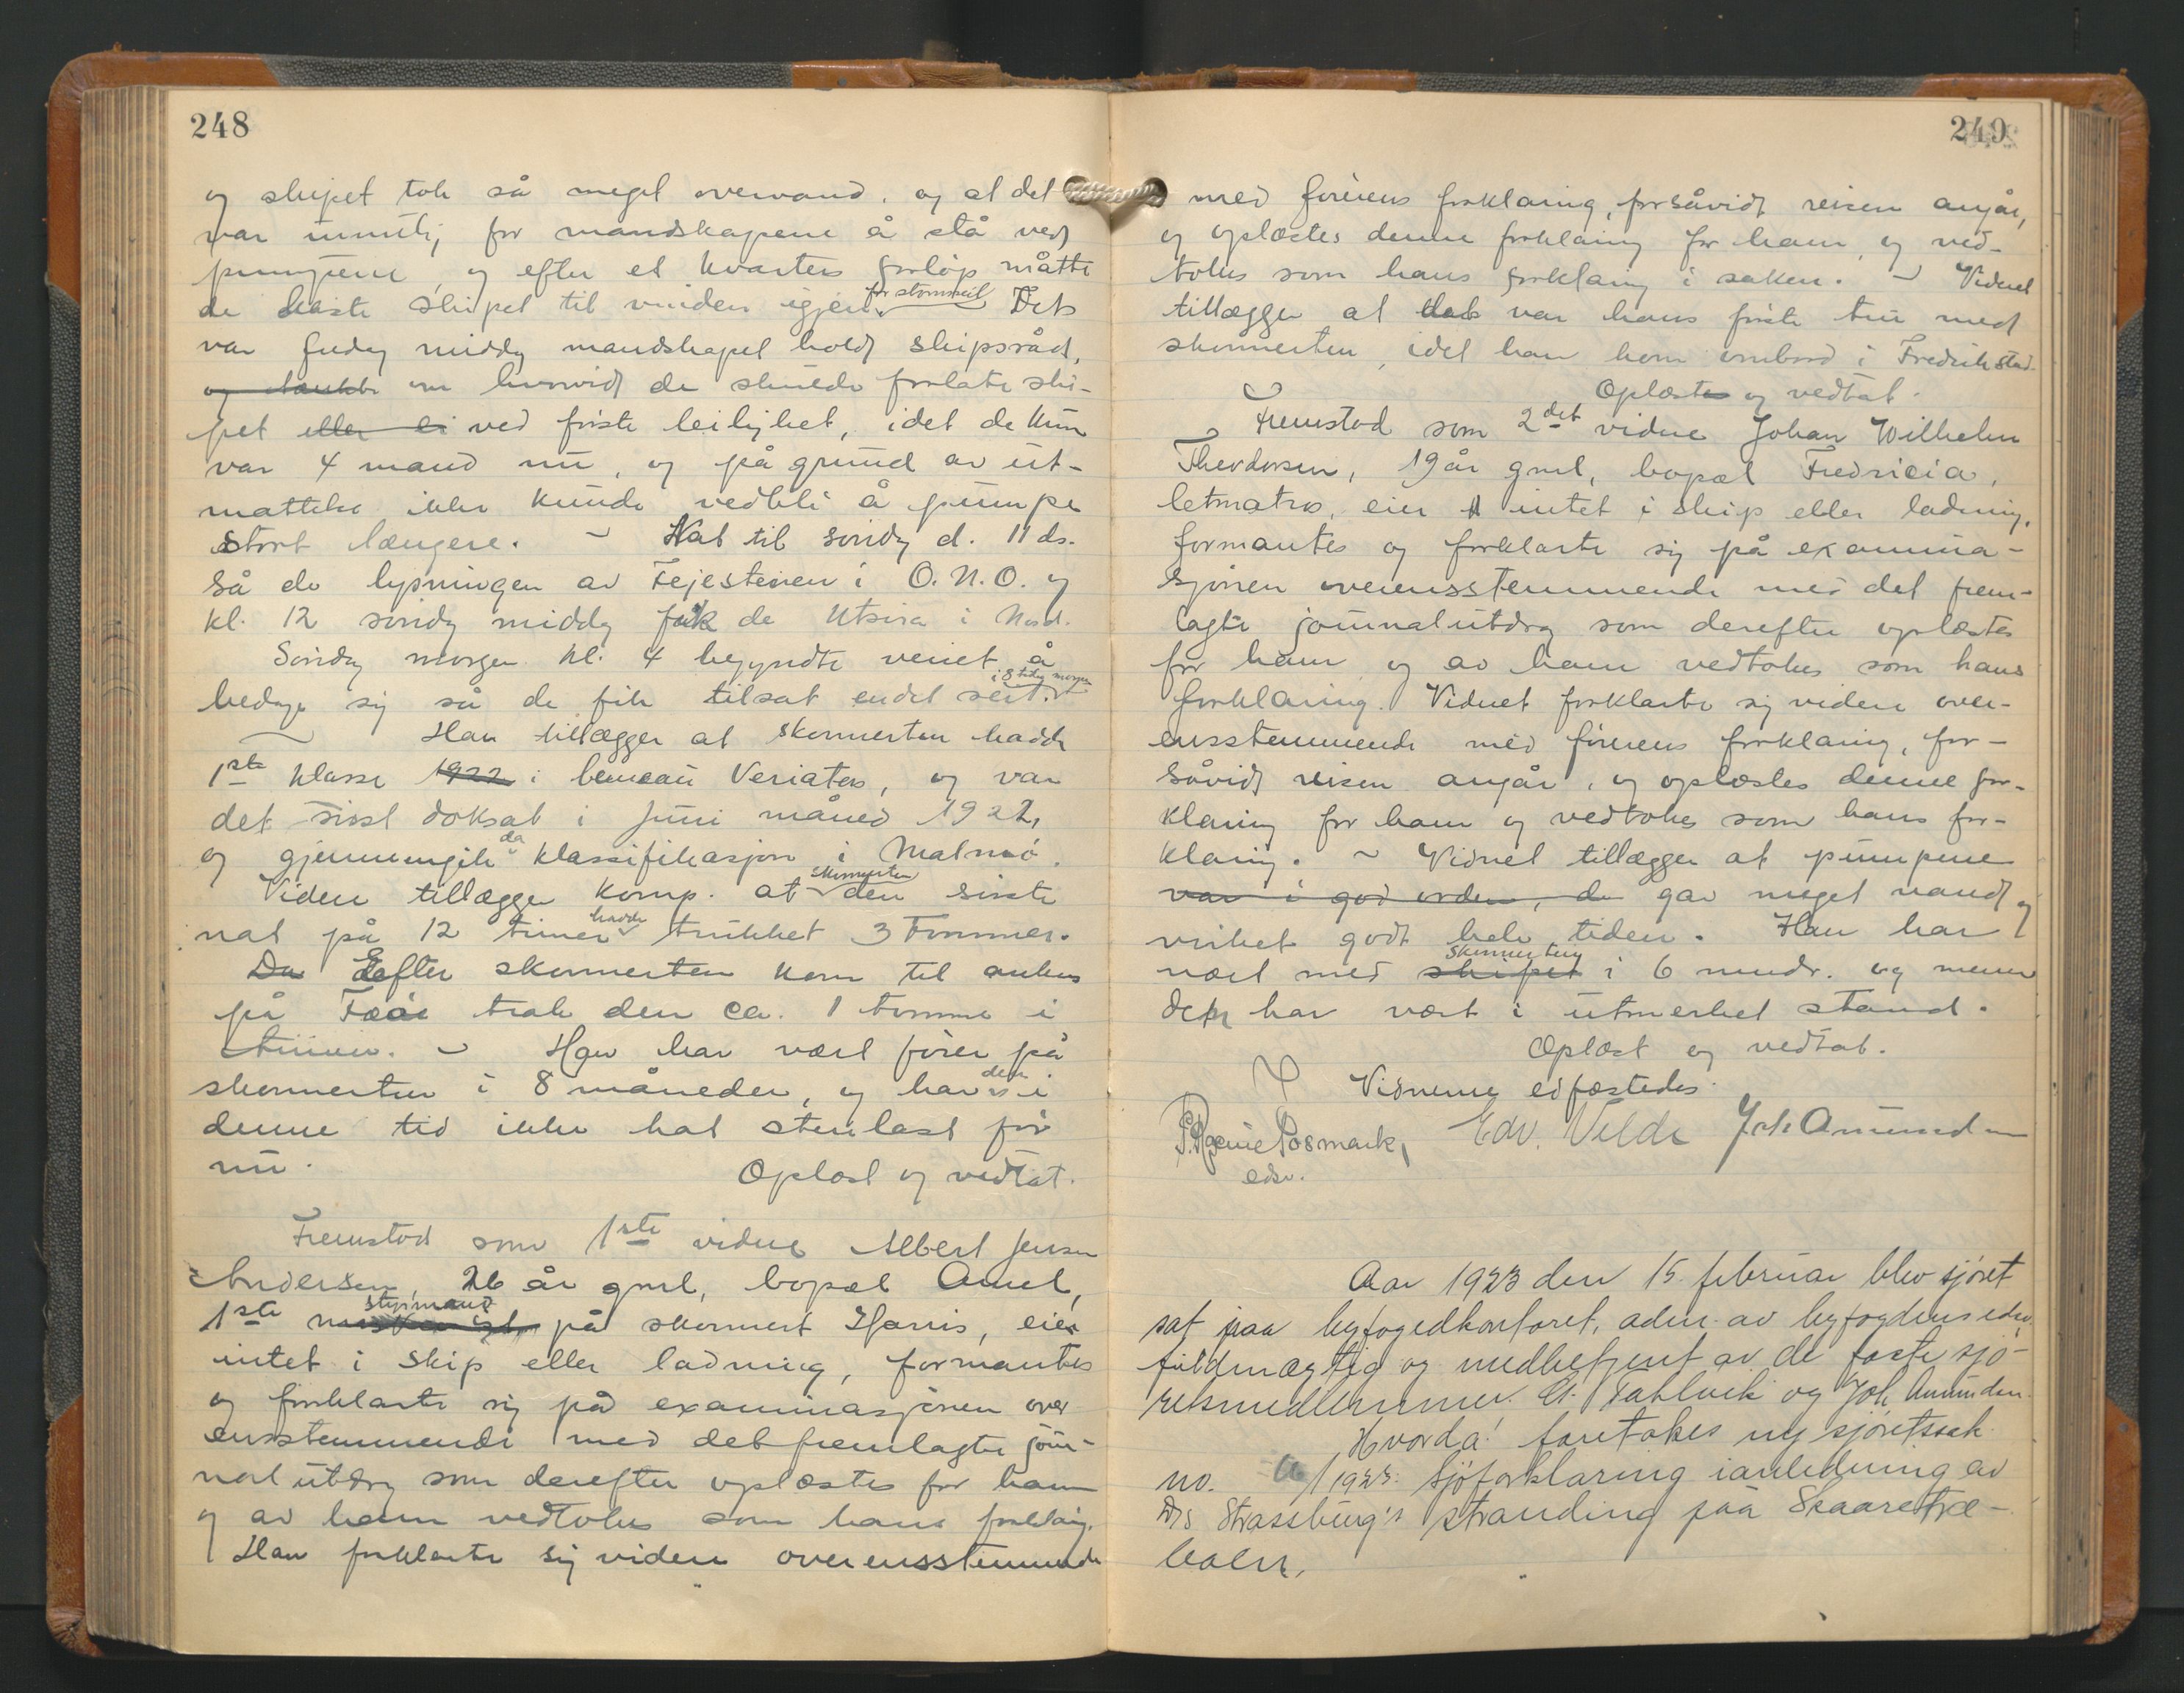 248
og skipet tok så meget overvand, og at det
var umulig for mandskapene å stå ved
pumpene, og efter et kvarters forløp måtte
de kaste skipet til vinden igjen for stormseil. Det
var fredag middag mandskapet holdt skipsråd,
og tænkte om hvorvidt de skulde forlate ski-
pet eller ei ved første leilighet, idet de kun
var 4 mand nu, og på grund av ut-
mattelse ikke kunde vedbli å pumpe
stort længere. ~ Nat til søndag d. 11 ds.
så de lysningen av Fejesteinen i O.N.O. og
kl. 12 søndag middag fik de Utsira i Nord.
Søndag morgen kl. 4 begyndte veiret å
bedage sig så de fik tilsat endel seil. i 8 tiden morgen
Han tillægger at skonnerten hadde
1ste klasse 1922 i bureau Veriatas, og var
det sisst doksat i juni måned 1922,
og gjennemgik da klassifikasjon i Malmø.
Videre tillægger komp. at skonnerten den siste
nat på 12 timer hadde trukket 3 Tommer.
Da Eefter skonnerten kom til ankers
på Fæøi trak den ca. 1 tomme i
timen. ~ Han har vært fører på
skonnerten i 8 måneder, og har den i
denne tid ikke hat stenlast før
nu.
Oplæst og vedtat.
Fremstod som 1ste vidne Albert Jensen
Andersen, 26 år gml, bopæl
1ste styrmand på skonnert Haris, eier
intet i skip eller ladning, formantes
og forklarte sig på examinasjonen over
ensstemmende med det fremlagte jour-
nal utdrag som derefter oplæstes for ham
og av ham vedtokes som hans forklaring.
Han forklarte sig videre overensstemmende
249
med førerens forklaring, forsåvidt reisen angår,
og oplæstes denne forklaring for ham og ved-
tokes som hans forklaring i saken. ~ Vidnet
tillægger at det var hans første tur med
skonnerten, idet han kom ombord i Fredrikstad.
Oplæstes og vedtat.
Fremstod som 2det vidne Johan Wilhelm
Theodorsen, 19 år gml, bopæl Fredricia,
letmatros, eier intet i skip eller ladning,
formantes og forklarte sig på examina-
sjonen overensstemmende med det frem-
lagte journalutdrag som derefter oplæstes
for ham og av ham vedtokes som hans
forklaring. Vidnet forklarte sig videre over-
ensstemmende med førerens forklaring, for-
såvidt reisen angår, og oplæstes denne for-
klaring for ham og vedtokes som hans for-
klaring. ~ Vidnet tillægger at pumpene
var i god orden, de gav meget vand og
virket godt hele tiden. Han har
vært med skipet skonnerten i 6 mndr. og mener
den har vært i utmerket stand.
Oplæst og vedtat.
Vidnene edfæstedes.
Posmark, Edv. Velde Joh Amundsen
edsv.
Aar 1923 den 15. februar blev sjøret
sat paa byfogedkontoret, adm. av byfogdens edsv.
fuldmægtig og medbetjent av de faste sjø-
retsmedlemmer. Joh. Amundsen.
Hvorda! foretokes ny sjøretssak
no. 6/1923: Sjøforklaring i anledning av
D/S Strassburg's stranding paa Skaaretræ-
boen,